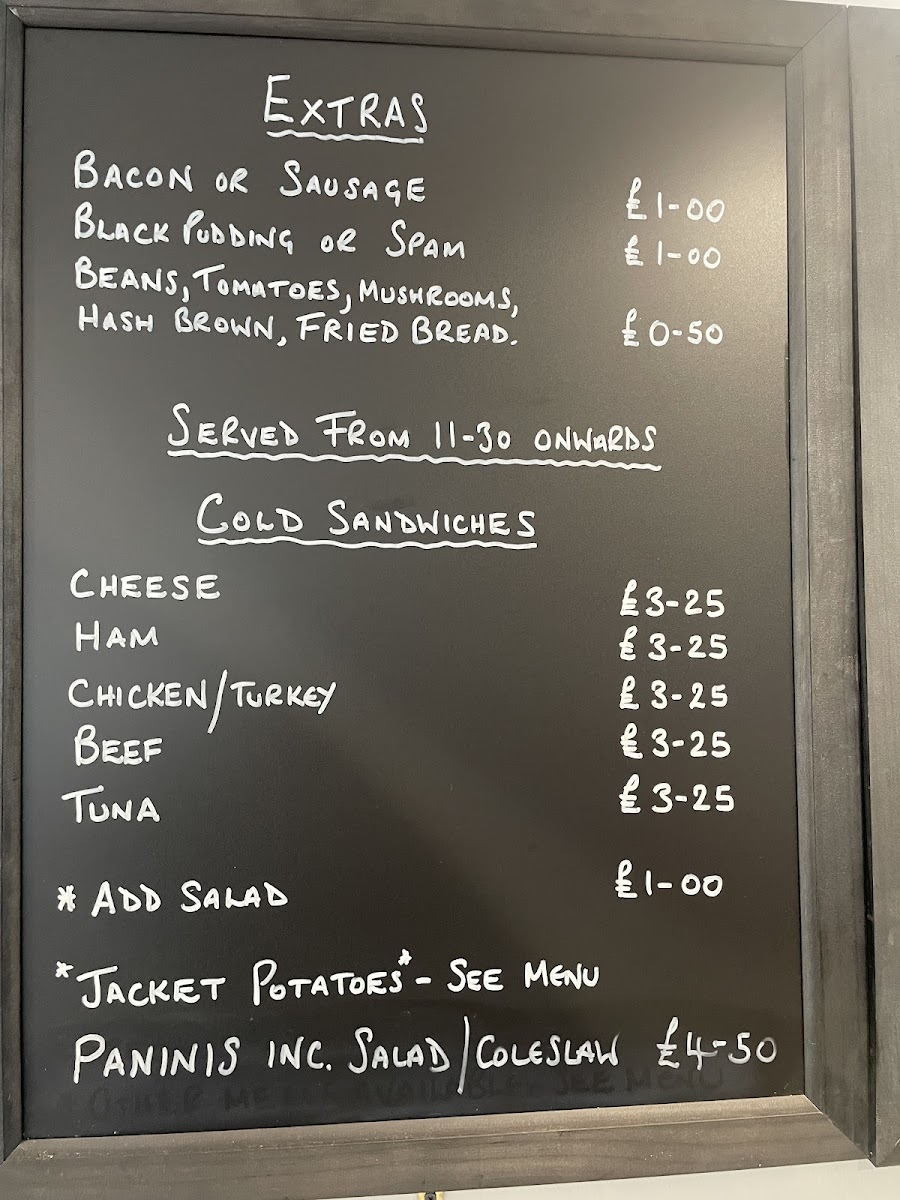 EXTRAS
BACON OR SAUSAGE £1-00
BLACK PUDDING OR SPAM £1-00
BEANS, TOMATOES, MUSHROOMS,
HASH BROWN, FRIED BREAD. £0-50
SERVED FROM 11-30 ONWARDS
COLD SANDWICHES
CHEESE £3-25
HAM £3-25
CHICKEN/TURKEY £3-25
BEEF £3-25
TUNA £3-25
* ADD SALAD £1-00
*JACKET POTATOES* - SEE MENU
PANINIS INC. SALAD/COLESLAW £4-50
OTHER AVAILABLE SEE MENU